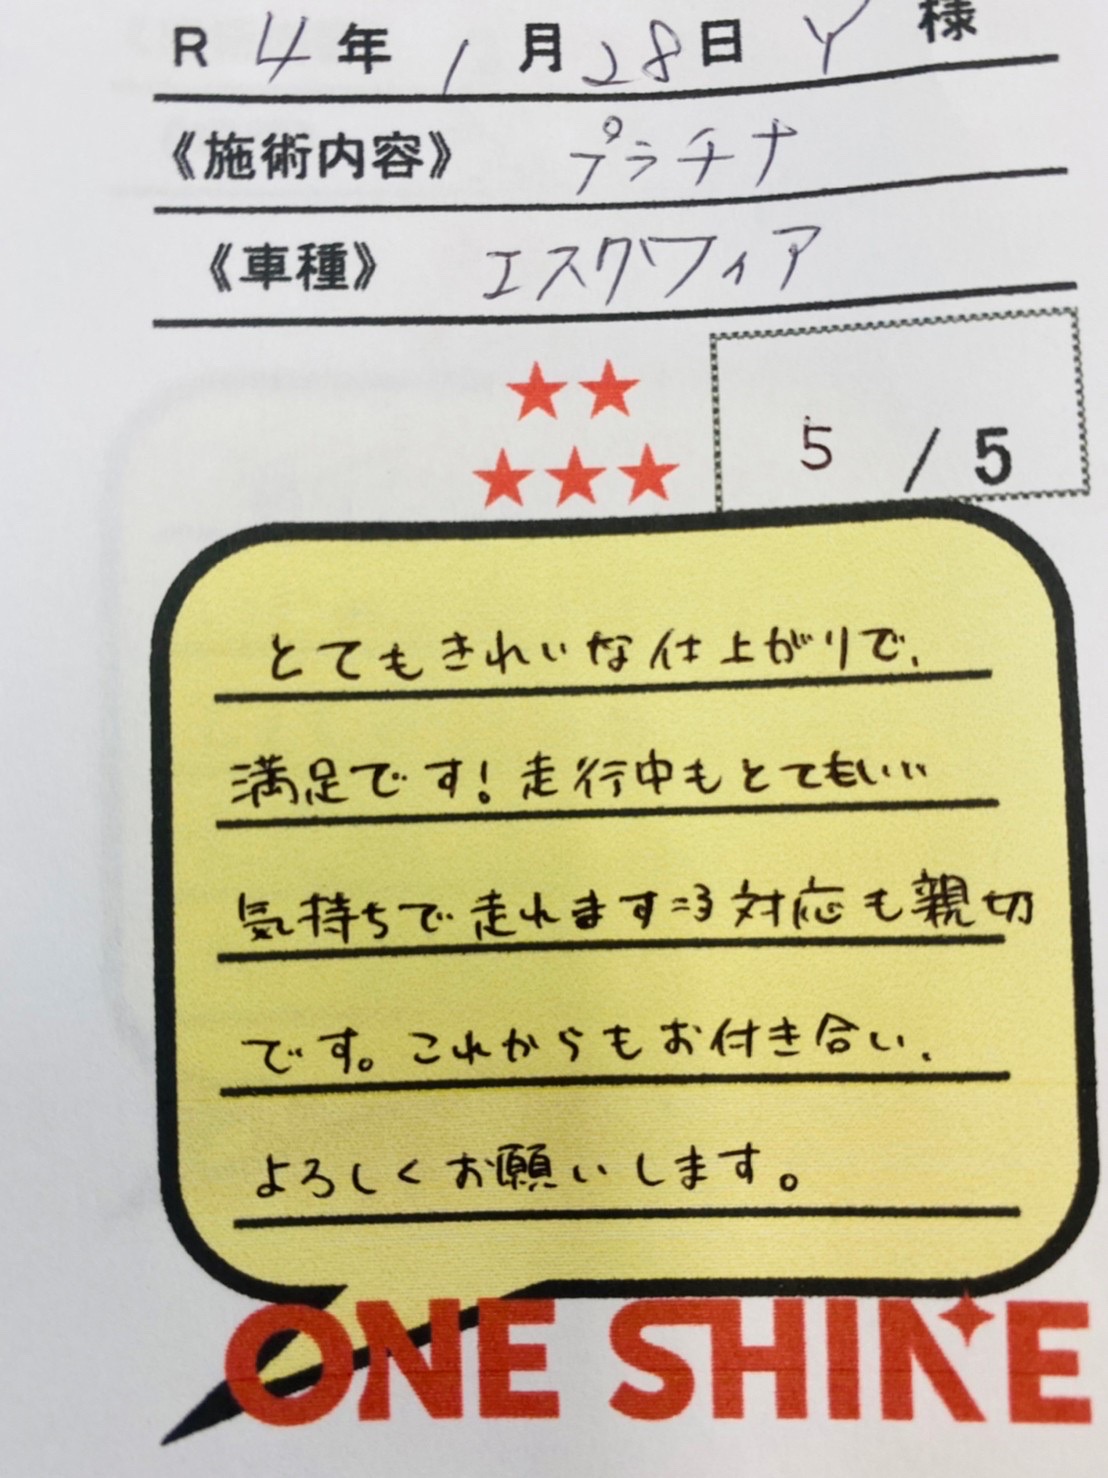 R 4年 1月28日 Y 様
《施術内容》 プラチナ
《車種》 エスクワィア
★★
★★★
5 / 5
とてもきれいな仕上がりで、
満足です！走行中もとてもいい
気持ちで走れます=3 対応も親切
です。これからもお付き合い、
よろしくお願いします。
ONE SHINE